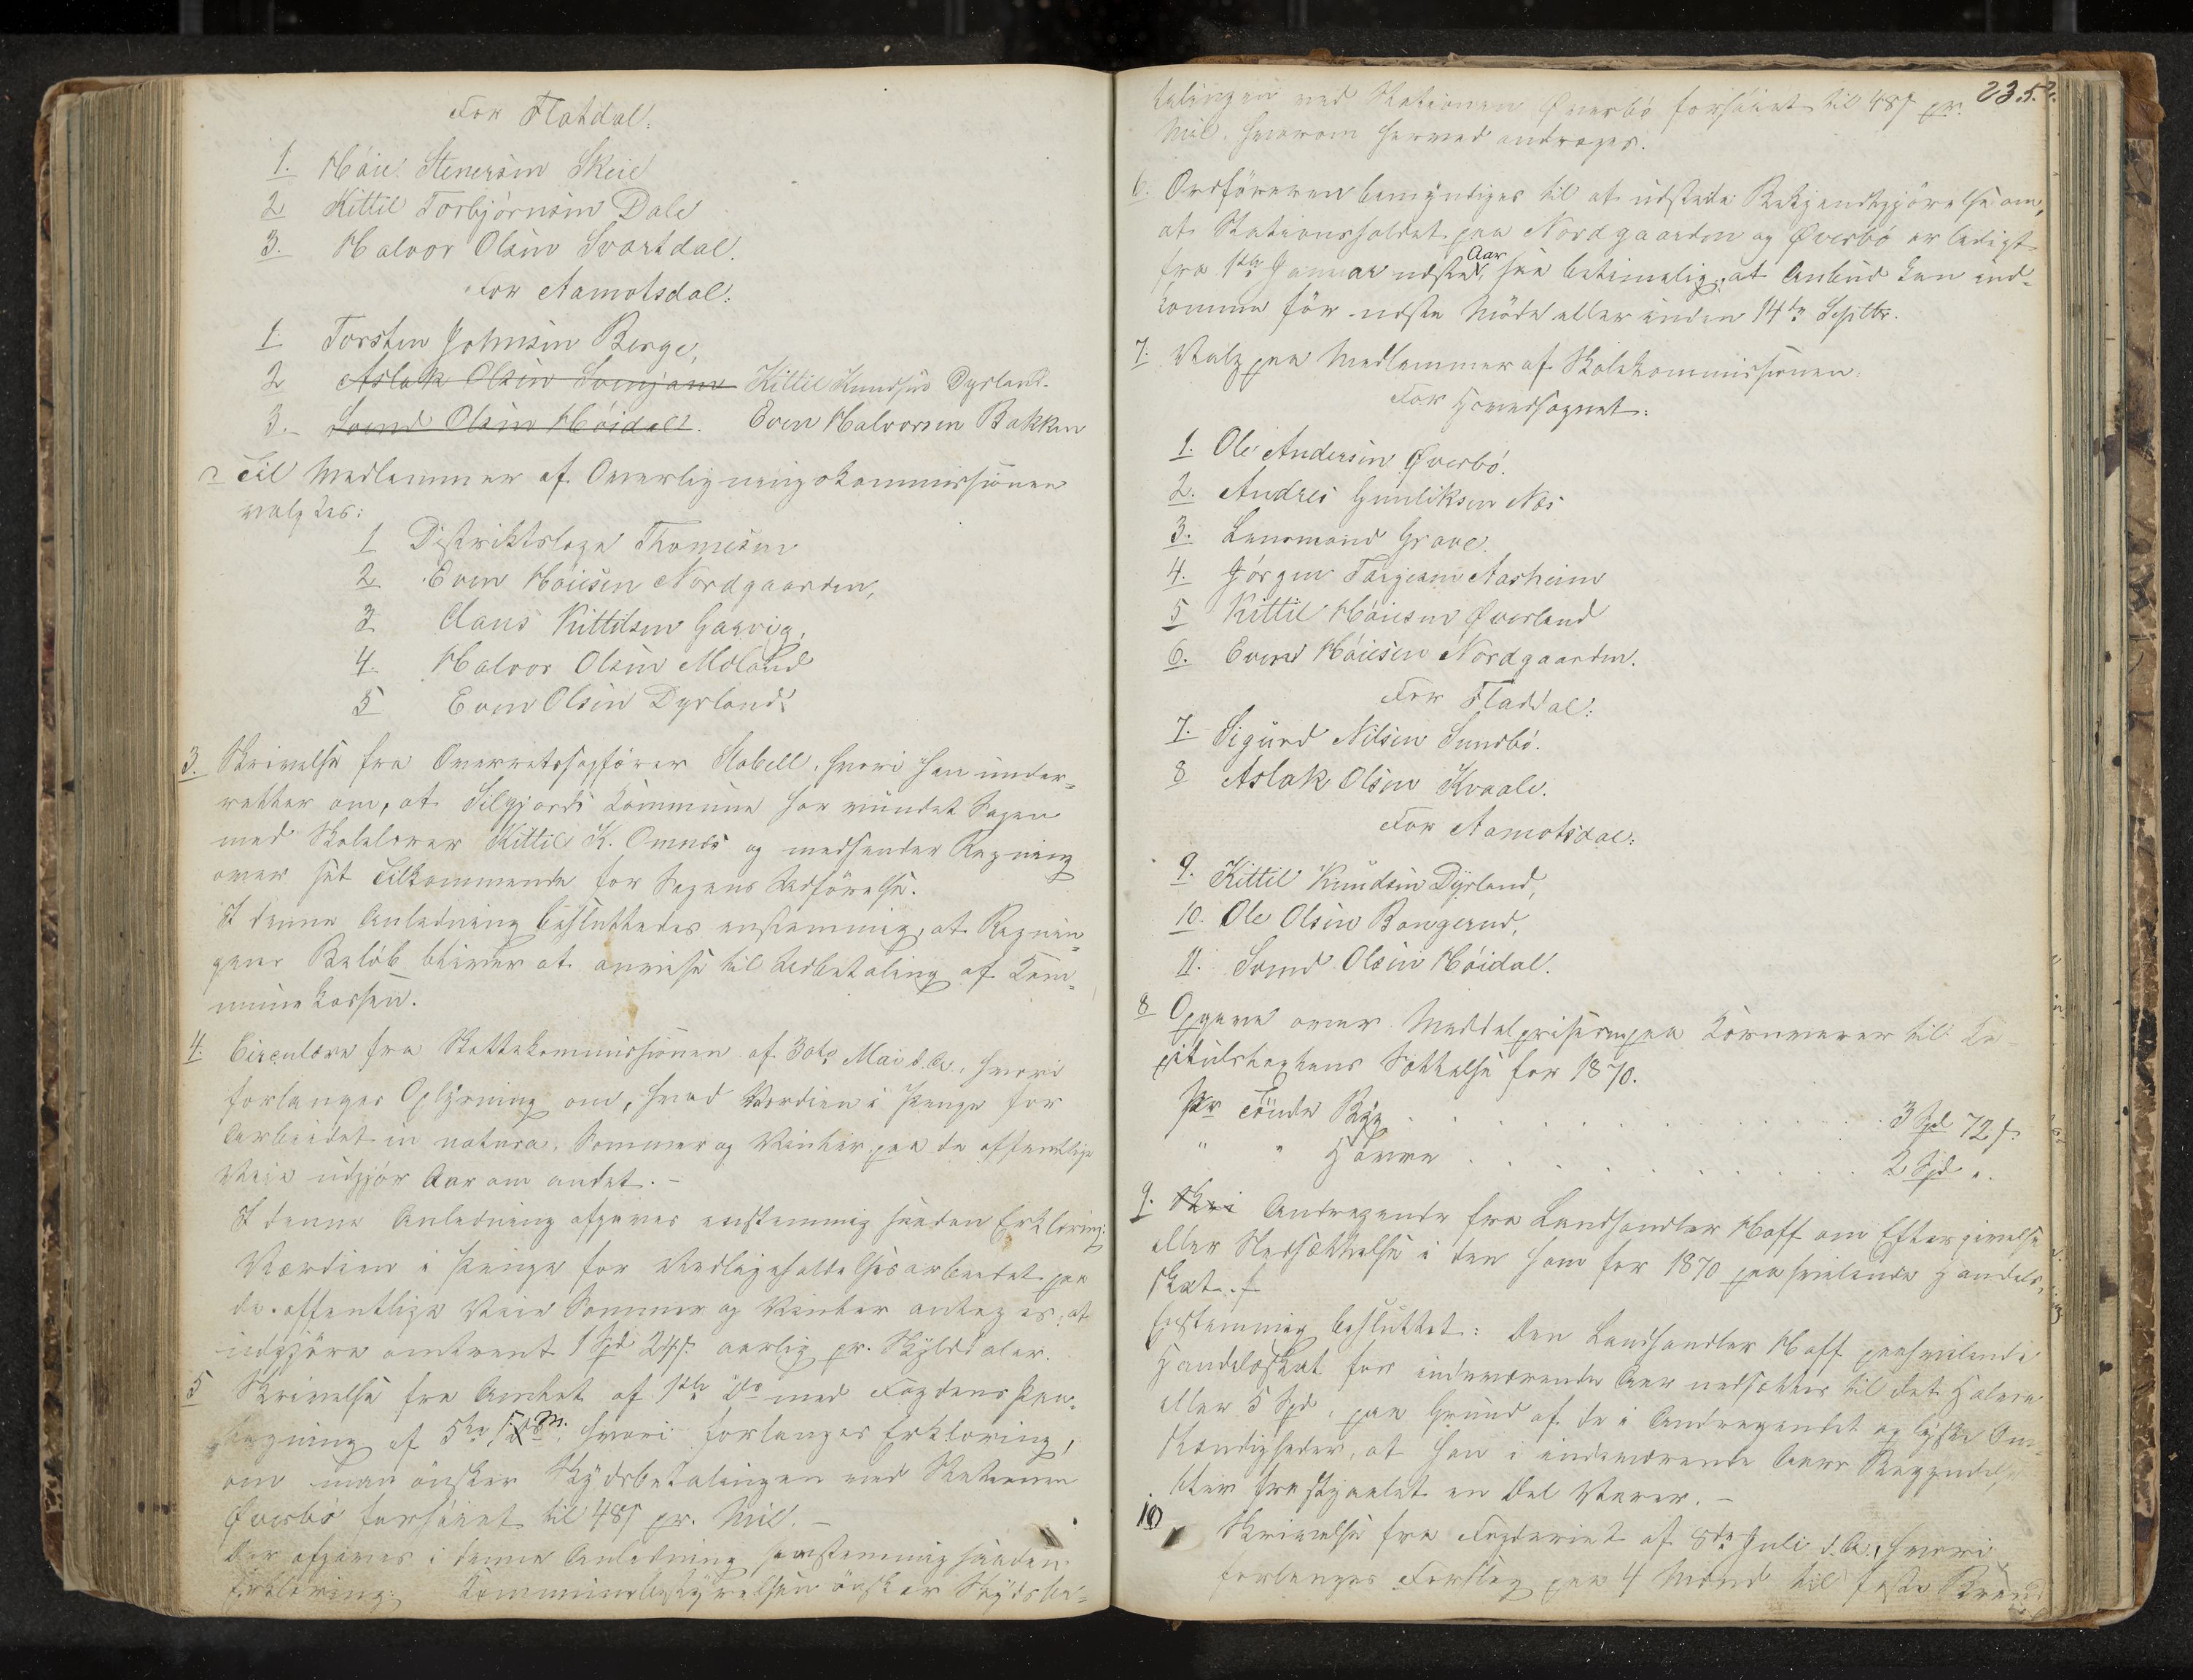 For Flatdal:
1. Høie Stenersen Skeie
2 Kittil Torbjørnsen Dale
3. Halvor Olsen Svartdal.
For Aamotsdal:
1 Torsten Johnsen Berge,
2 Aslak Olsen Svenjam Kittil Knudsen Dyrland.
3. Svend Olsen Høidal. Even Halvorsen Bakken
2 Til Medlemmer af Overligningskommissionen
valgtes:
1 Distriktslæge Thomesen
2 Even Høiesen Nordgaarden,
3 Claus Kittilsen Garvig,
4. Halvor Olsen Moland
5 Even Olsen Dyrland.
3. Skrivelse fra Overretssagfører Stabell, hvori han under-
retter om, at Siljords Kommune har vundet Sagen
med Skolelærer Kittil K. Omnes og medsender Regning
over sit Tilkommende for Sagens Udførelse.
I denne Anledning besluttedes enstemmig, at Regnin-
gens Beløb bliver at anvise til Udbetaling af Kom-
munekassen.
4. Circulære fra Skattekommissionen af 30te Mai d. A., hvori
forlanges Oplysning om, hvad Værdien i Penge for
Arbeidet in natura, Sommer og Vinter, paa de offentlige
Veie udgjør Aar om andet. -
I denne Anledning afgaves enstemmig saadan Erklæring:
Værdien i Penge for Vedligeholdelsesarbeidet paa
de offentlige Veie Sommer og Vinter antages, at
udgjøre omtrent 1 Spd 24 s. aarlig pr. Skylddaler.
5 Skrivelse fra Amtet af 1ste ds med Fogdens Paa-
tegning af 5te s. M. hvori forlanges Erklæring,
om man ønsker Skydsbetalingen ved Stationen
Øverbø forhøiet til 48 s pr. Mil. -
Der afgaves i denne Anledning enstemmig saadan
Erklæring: Kommunebestyrelsen ønsker Skydsbe-
235.
talingen ved Stationen Øverbø forhøiet til 48 s pr.
Mil, hvorom herved andrages.
6. Ordføreren bemyndiges til at udstede Bekjendtgjørelse om,
at Stationsholdet paa Nordgaarden og Øverbø er ledigt
fra 1ste Januar næste Aar, saa betimelig, at Anbud kan ind-
komme før næste Møde eller inden 14de Septbr.
7. Valg paa Medlemmer af Skolekommissionen.
For Hovedsognet:
1. Ole Andersen Øverbø.
2. Andres Gunliksen Næs
3. Lensmand Grave.
4. Jørgen Tarjeisen Aasheim
5 Kittil Høiesen Øverland
6. Even Høiesen Nordgaarden.
For Fladdal:
7. Sigurd Nilsen Sundbø.
8 Aslak Olsen Kvaale.
For Aamotsdal:
9. Kittil Knudsen Dyrland,
10. Ole Olsen Bangerud,
11. Svend Olsen Høidal.
8 Opgave over Middelprisen paa Kornvarer til Ka-
pitulstaxtens Sættelse for 1870.
Pr Tønde Byg . . . . . . 3 Spd 72 s.
" " Havre . . . . . . 2 Spd ".
9. Skri Andragende fra Landhandler Hoff om Eftergivelse
eller Nedsættelse i den ham for 1870 paahvilende Handels-
skat.
Enstemmig besluttet: Den Landhandler Hoff paahvilende
Handelsskat for indeværende Aar nedsættes til det Halve
eller 5 Spd, paa Grund af de i Andragendet oplyste Om-
stændigheder, at han i indeværende Aars Begyndelse
blev frastjaalet en Del Varer. -
10 Skrivelse fra Fogderiet af 8de Juli d. A., hvori
forlanges Forslag paa 4 Mænd til faste